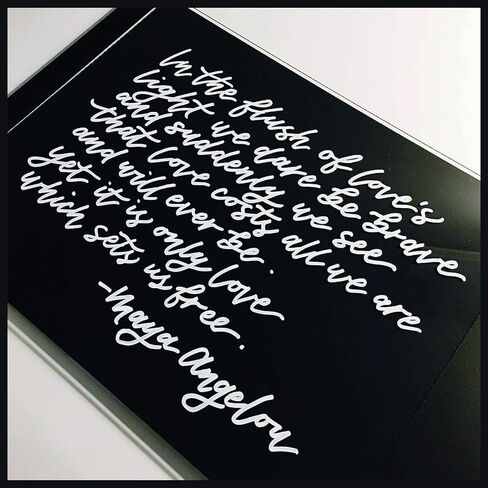 In the flush of love's
light we dare be brave
and suddenly we see
that love costs all we are
and will ever be.
yet it is only love
which sets us free.
-Maya Angelou